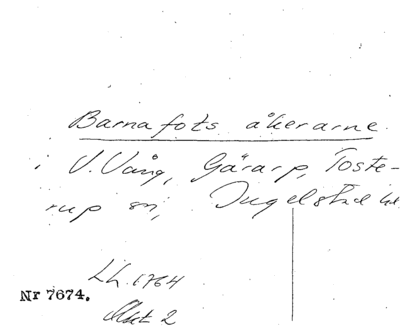 Barnafots åkerarne
i V. Vång, Gärarp, Toste-
rup sn, Ingelstad hd.
LL. 1764
Nr 7674.
Akt 2